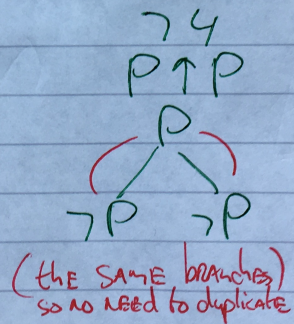 ¬ 4
P ↑ P
P
¬P ¬P
(the same branches)
so no need to duplicate